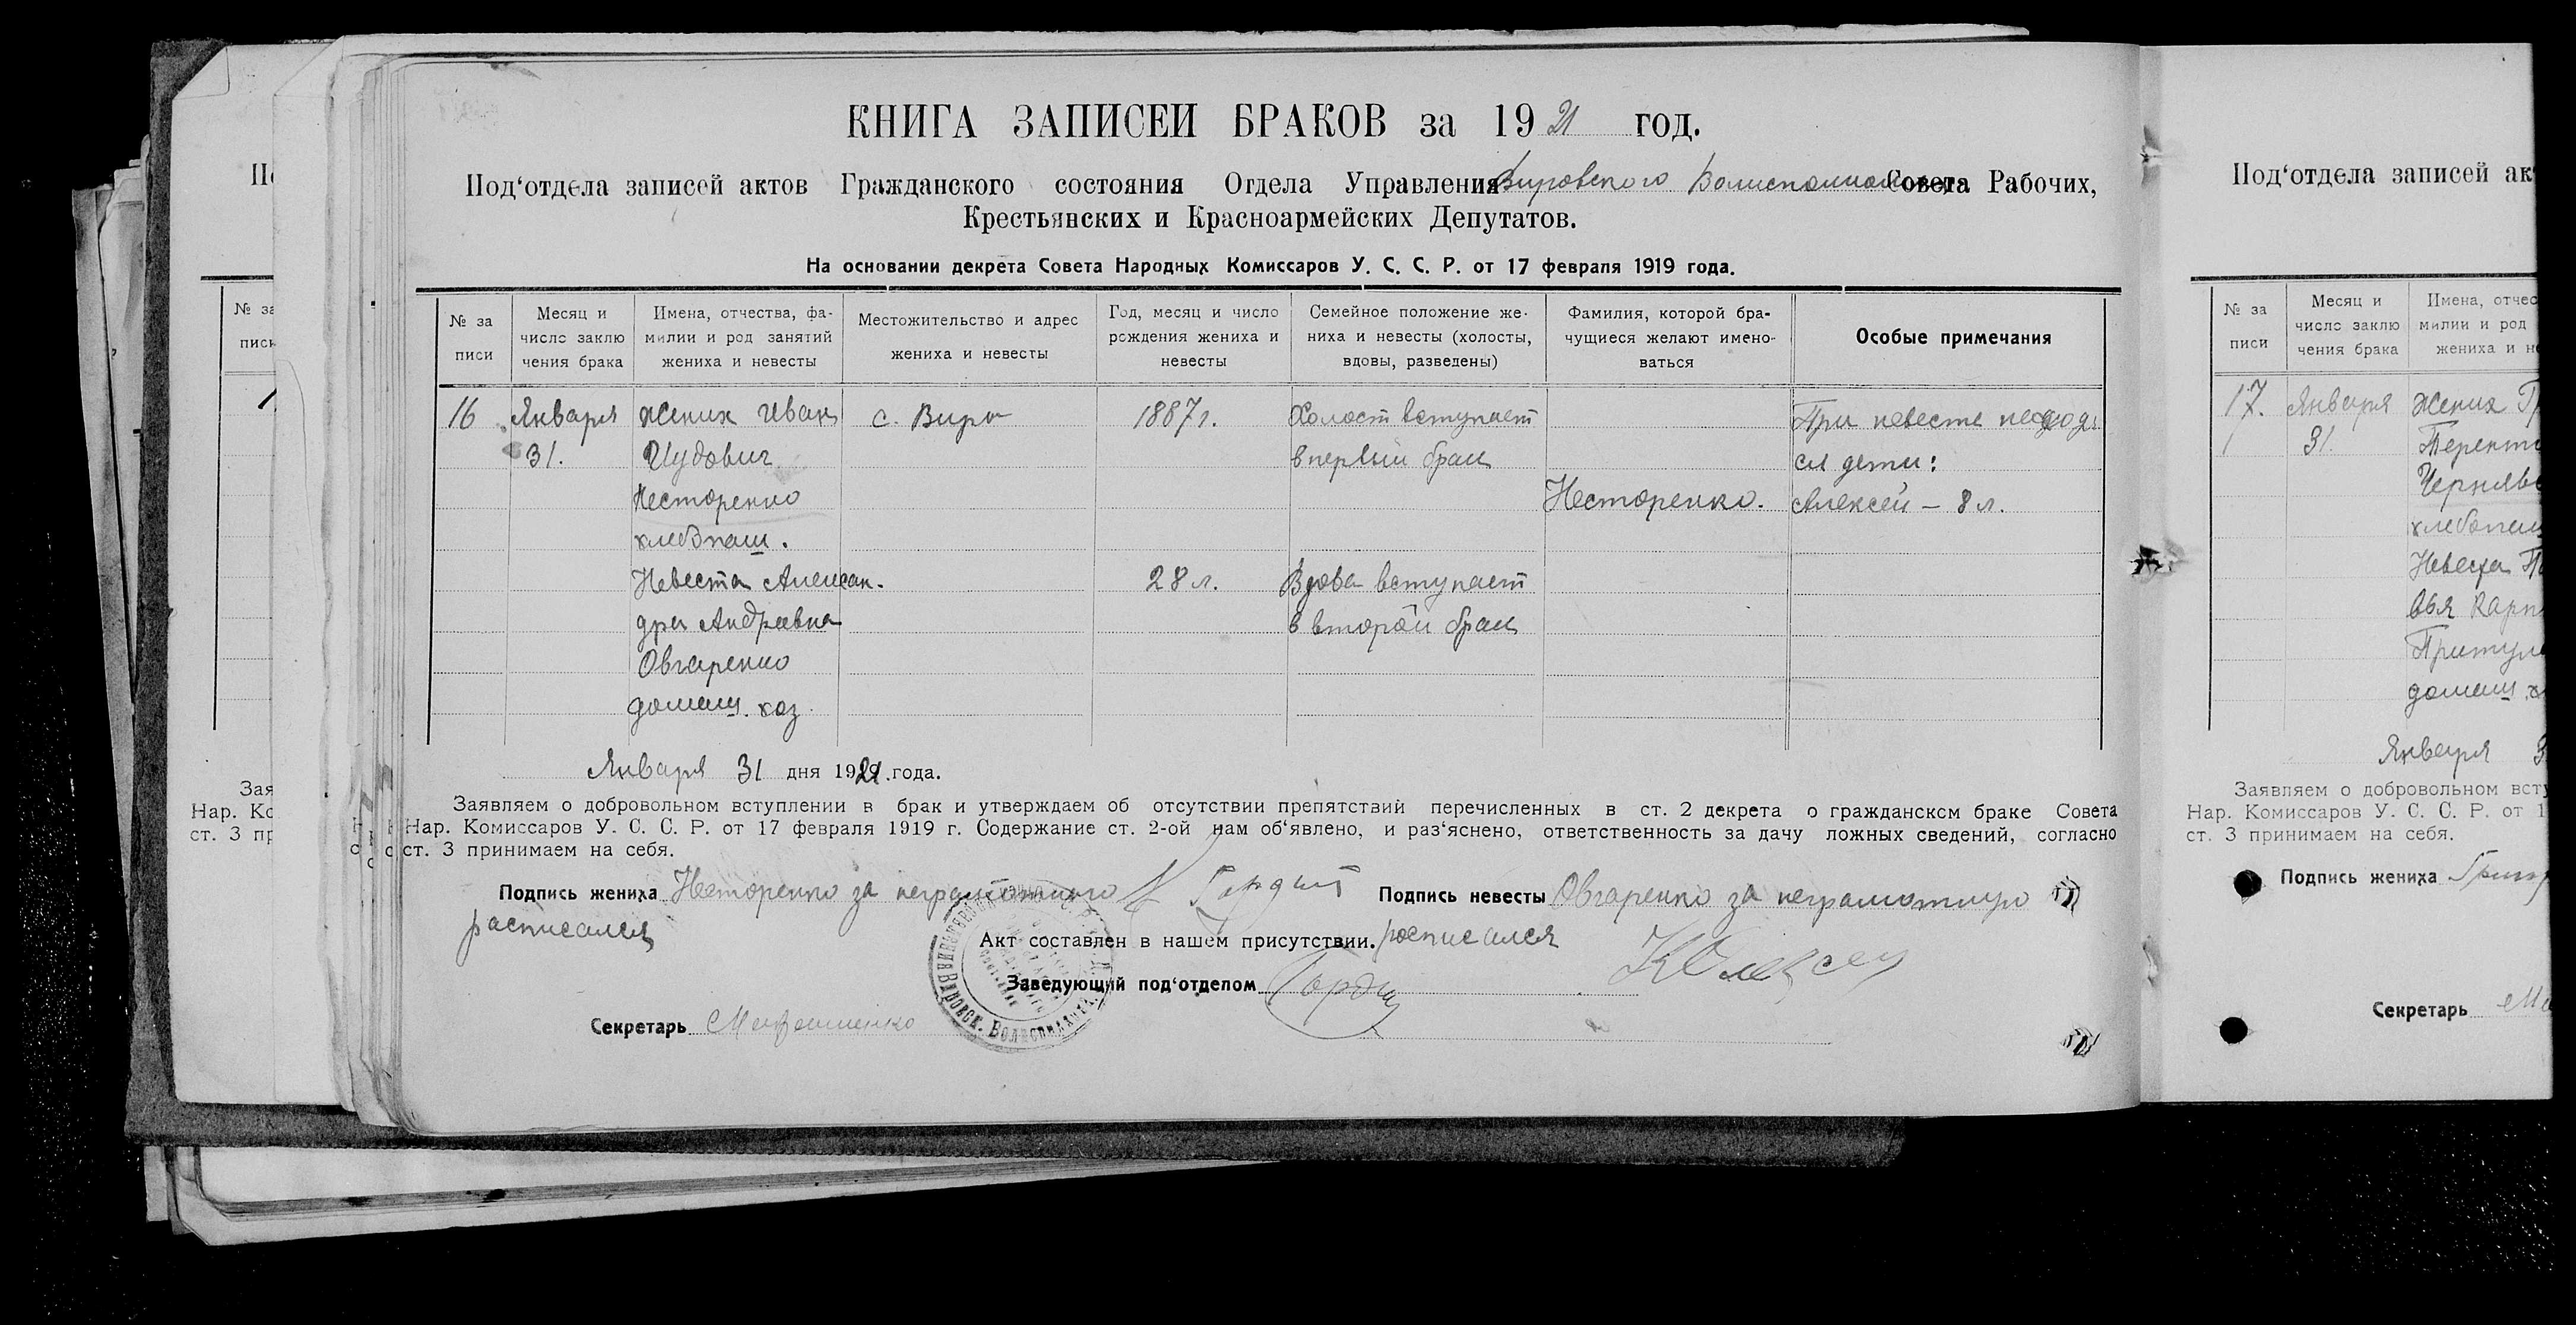 КНИГА ЗАПИСЕЙ БРАКОВ за 1921 год.
Под‘отдела записей актов Гражданского состояния Отдела Управления Вировского Волисполкома Совета Рабочих,
Крестьянских и Красноармейских Депутатов.
На основании декрета Совета Народных Комиссаров У. С. С. Р. от 17 февраля 1919 года.
№ за писи
Месяц и число заклю чения брака
Имена, отчества, фа- милии и род занятий жениха и невесты
Местожительство и адрес жениха и невесты
Год, месяц и число рождения жениха и невесты
Семейное положение же- ниха и невесты (холосты, вдовы, разведены)
Фамилия, которой бра- чущиеся желают имено- ваться
Особые примечания
16 Января Жених Иван с. Вира 1887 г. Холост вступает При невесте находя
31. Иудович в первый брак ся дети:
Несторенко Несторенко. Алексей – 8 л.
хлебпаш.
Невеста Алексан- 28 л. Вдова вступает
дра Андреевна в второй брак
Овчаренко
домаш. хоз.
Января 31 дня 1921 года.
Заявляем о добровольном вступлении в брак и утверждаем об отсутствии препятствий перечисленных в ст. 2 декрета о гражданском браке Совета
Нар. Комиссаров У. С. С. Р. от 17 февраля 1919 г. Содержание ст. 2-ой нам об‘явлено, и раз‘яснено, ответственность за дачу ложных сведений, согласно
ст. 3 принимаем на себя.
Подпись жениха Несторенко за неграмотного Подпись невесты Овчаренко за неграмотную
расписался
Акт составлен в нашем присутствии. росписался
Заведующий под‘отделом
Секретарь
№ за
писи
Под‘отдела записей ак
№ за писи
Месяц и число заклю чения брака
Имена, отчес милии и род жениха и не
17. Января Жених
31.
Невеста
домаш.
Января
Заявляем о добровольном всту
Нар. Комиссаров У. С. С. Р. от 1
ст. 3 принимаем на себя.
Подпись жениха
Секретарь